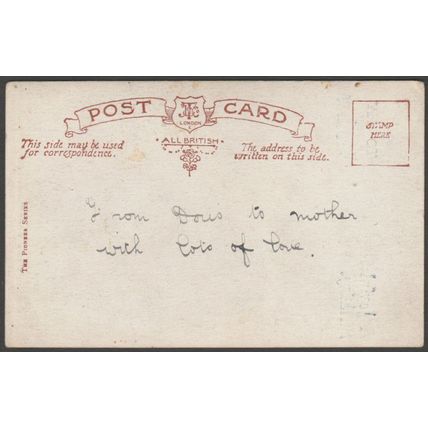 POST CARD
LONDON
ALL BRITISH
This side may be used
for correspondence.
The address to be
written on this side.
STAMP
HERE
THE PIONEER SERIES
From Doris to mother
with lots of love.